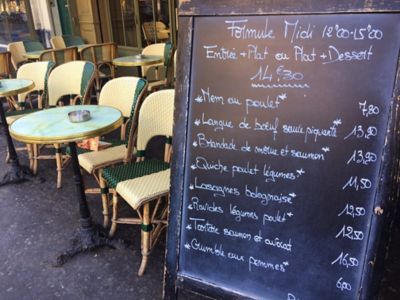 Formule Midi 12h00-15h00
Entrée + Plat ou Plat + Dessert
14,30
*Nem au poulet* 7,80
*Langue de bœuf sauce piquante* 13,90
*Brandade de morue et saumon* 13,90
*Quiche poulet légumes* 11,50
*Lasagnes bolognaise* 12,50
*Ravioles légumes poulet* 12,50
*Tartare saumon et avocat* 16,50
*Crumble aux pommes* 6,00